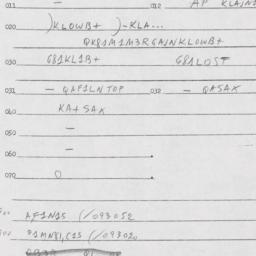 011 — 012 AP KLAJN
020 )KLOWB+ )-KLA...
QK81M1M3RGAJNKLOWB+
030 G81KL1B+ G81LOST
031 — QAF1LNTOP 032 — QASAX
040 KA+SAX
050 —
060 —
070 O
AF1N15 (/093052
01MN81,C15 (/093020